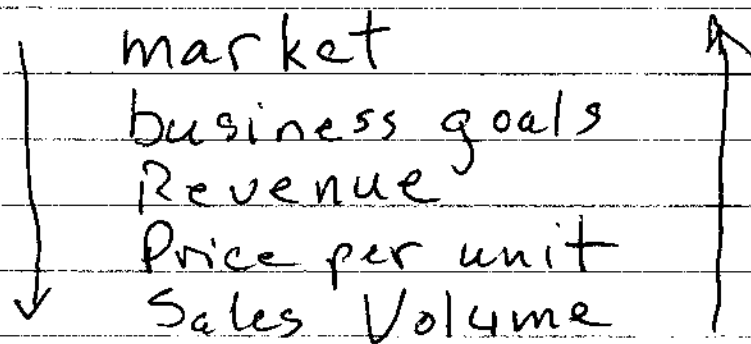 market
business goals
Revenue
Price per unit
Sales Volume